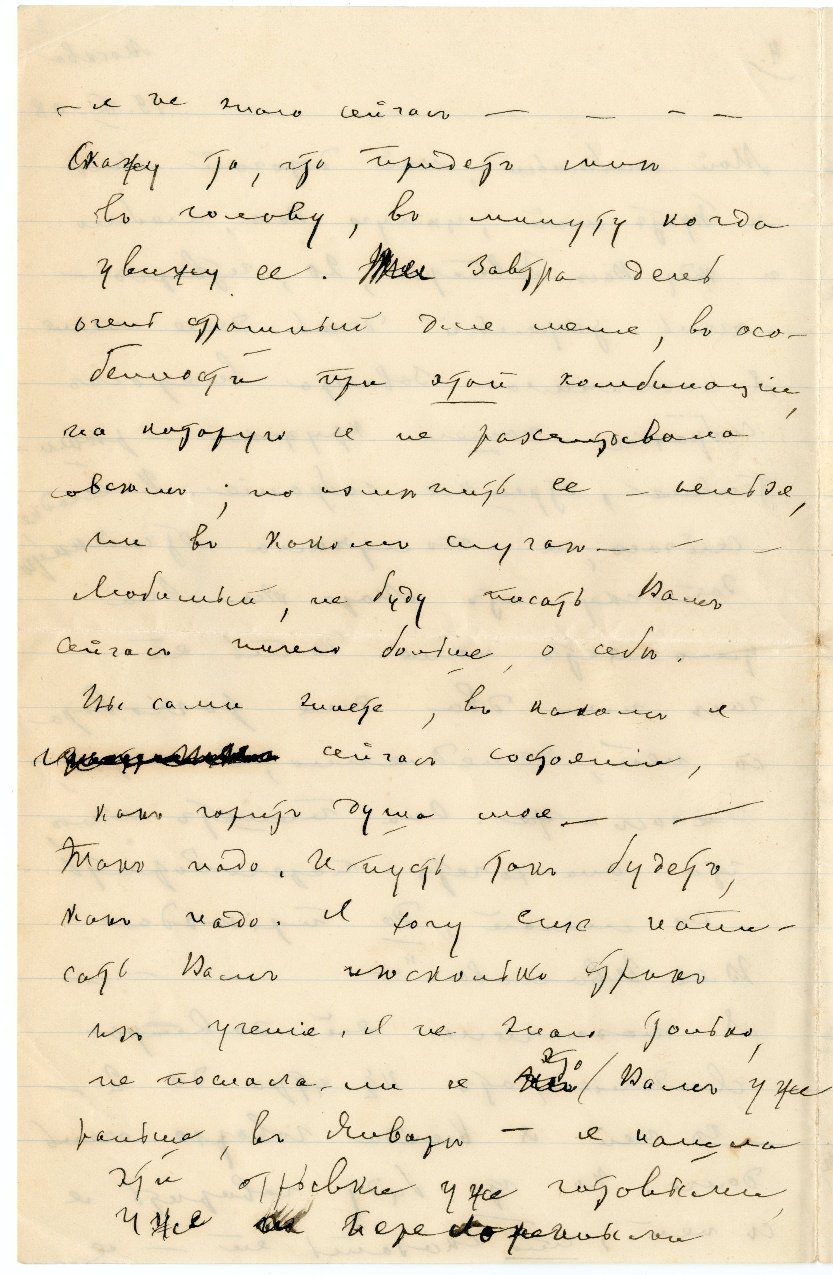 – я не знаю сейчасъ — – – –
Скажу то, что придетъ мнѣ
въ голову, въ минуту когда
увижу ее. Завтра день
очень страшный для меня, въ осо-
бенности при этой комбинаціи,
на которую я не разсчитывала
совсѣмъ; но измѣнить ее – нельзя,
ни въ какомъ случаѣ – – –
Любимый, не буду писать Вамъ
сейчасъ ничего больше о себѣ.
Вы сами знаете, въ какомъ я
сейчасъ состояніи,
какъ горитъ душа моя – —
Такъ надо. И пусть такъ будетъ,
какъ надо. Я хочу еще напи-
сать Вамъ нѣсколько строкъ
изъ ученія. Я не знаю только,
не послала-ли я это Вамъ уже
раньше, въ Январѣ – я нашла
эти отрывки уже готовыми,
уже переложенными